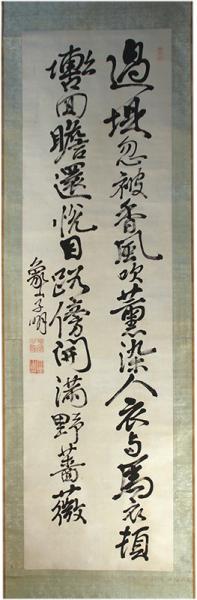 過堤忽被香風吹薰染人衣与馬衣頓
首回瞻還悦目路傍開満野薔薇
象山子明